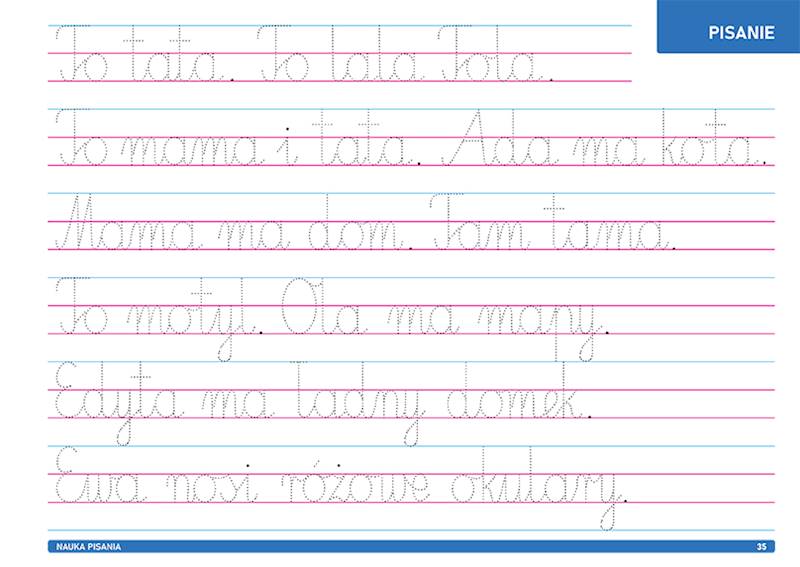 PISANIE
To tata. To lala Tola.
To mama i tata. Ada ma kota.
Mama ma dom. Tam tama.
To motyl. Ola ma mapy.
Edyta ma ładny domek.
Ewa nosi różowe okulary.
NAUKA PISANIA 35